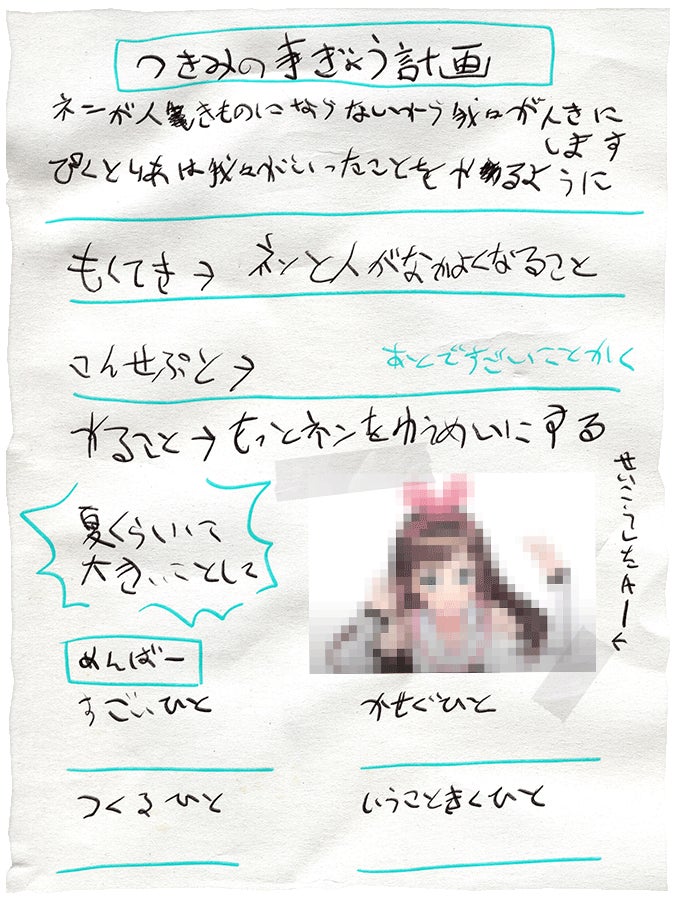 つきみの事ぎょう計画
ネンが人きものにならないから我々が人きに
します
びくとりあは我々がいったことをやるように
もくてき→ ネンと人がなかよくなること
こんせぷと→
あとですごいことかく
やること→もっとネンをゆうめいにする
せいこうしたAI→
夏くらいいて
大きいことして
めんばー
すごいひと
かせぐひと
つくるひと
いうこときくひと